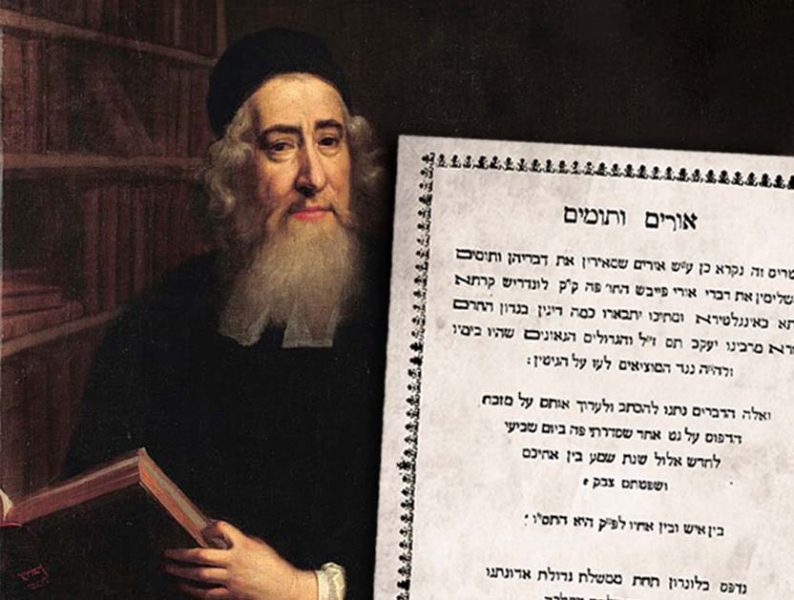 אורים ותומים
זה נקרא כן ע״ש אורים שמאירין את דבריהן ותומים
שלימין את דברי אורי פייבש החו׳ פה ק״ק לונדריש קרתא
תא באינגלטירא ומתוכו יתבארו כמה דינין בנדון החרם
מרבינו יעקב תם ז״ל והגדולים הגאונים שהיו בימיו
זלה״ה נגד המוציאים לעז על הגיטין :
ואלה הדברים נתנו להכתב ולערוך אותם על מזבח
הדפוס על גט אחד שסדרתי פה ביום שביעי
לחדש אלול שנת שמע בין אחיכם
ושפטתם צדק
בין איש ובין אחיו לפ״ק היא התס״ו
נדפס בלונדון תחת ממשלת גדולת אדונתנו